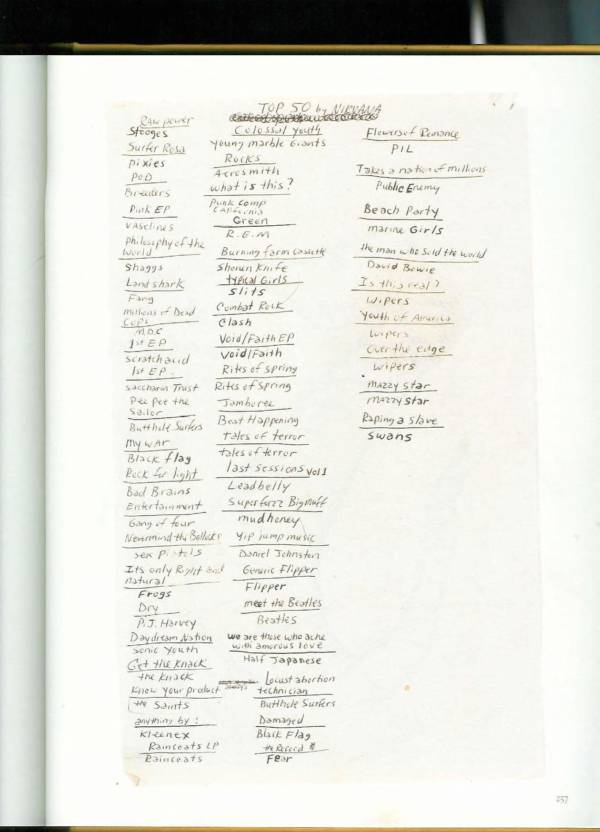 TOP 50 by NIRVANA
RAW power
Stooges
Surfer Rosa
Pixies
POD
Breeders
Pink EP
Vaselines
Philosophy of the
World
Shaggs
Landshark
Fang
Millions of Dead
COPS
M.D.C
1st EP
Scratch acid
1st EP.
Saccharin Trust
Pee pee the
Sailor
Butthole Surfers
My WAR
Black flag
Rock for light
Bad Brains
Entertainment
Gang of four
Nevermind the Bollocks
Sex Pistols
Its only Right and
natural
Frogs
Dry
P.J. Harvey
Daydream Nation
Sonic Youth
Get the KNACK
the Knack
Know Your product
the Saints
anything by:
Kleenex
Raincoats LP
Raincoats
Colossal Youth
Young Marble Giants
Rocks
Aerosmith
what is this?
Punk Comp
California
Green
R.E.M
Burning farm Cassette
Shonen Knife
typical Girls
Slits
Combat Rock
Clash
Void/Faith EP
Void/Faith
Rites of Spring
Rites of Spring
Jamboree
Beat Happening
Tales of terror
tales of terror
last sessions Vol 1
Leadbelly
Superfuzz Bigmuff
mudhoney
Yip jump music
Daniel Johnston
Generic Flipper
Flipper
meet the Beatles
Beatles
we are those who ache
with amorous love
Half Japanese
Locust abortion
technician
Butthole Surfers
Damaged
Black Flag
the Record
FEAR
Flowers of Romance
PIL
Takes a nation of millions
Public Enemy
Beach Party
marine Girls
the man who sold the world
David Bowie
Is this real?
Wipers
Youth of America
Wipers
Over the edge
Wipers
mazzy star
mazzy star
Raping a slave
Swans
257